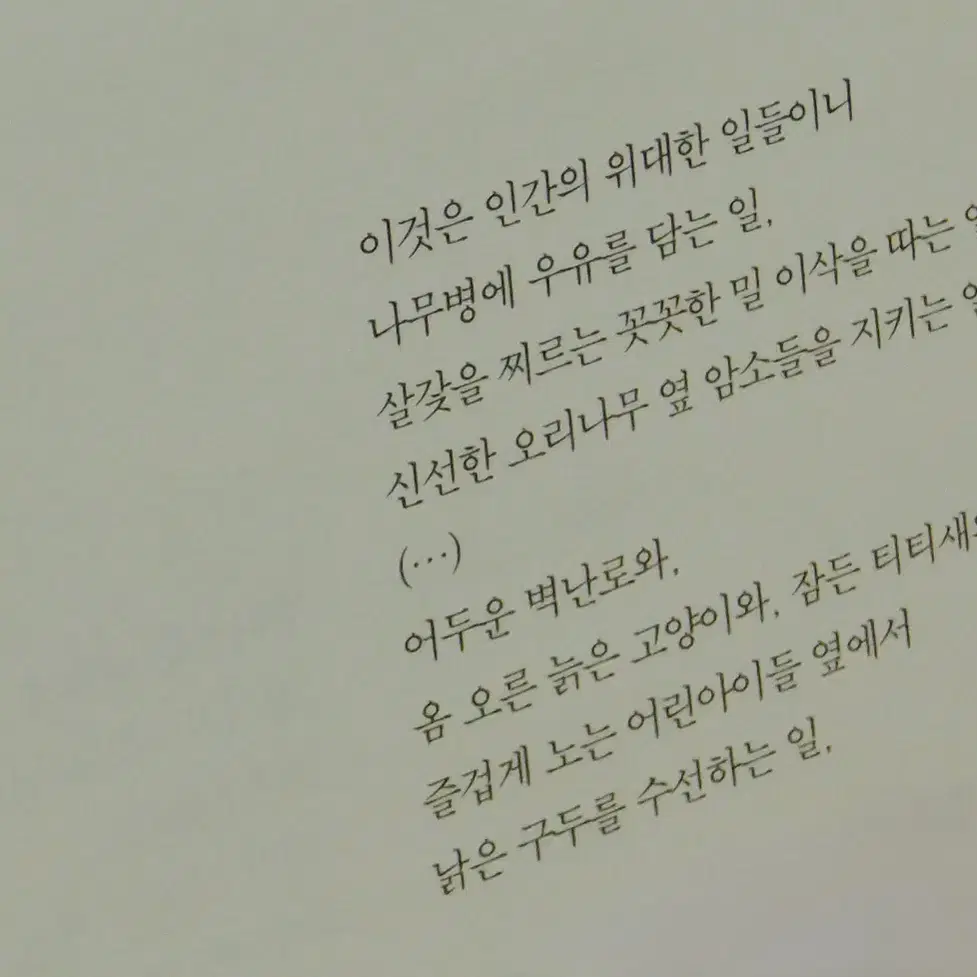 이것은 인간의 위대한 일들이니
나무병에 우유를 담는 일,
살갗을 찌르는 꼿꼿한 밀 이삭을 따는
신선한 오리나무 옆 암소들을 지키는
(…)
어두운 벽난로와,
옴 오른 늙은 고양이와, 잠든 티티새와
즐겁게 노는 어린아이들 옆에서
낡은 구두를 수선하는 일,